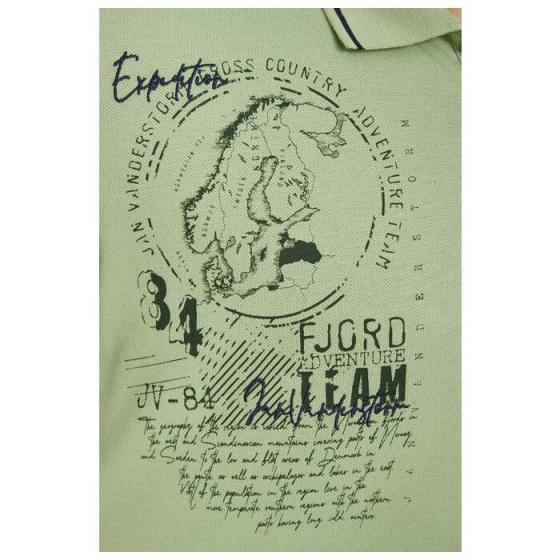 Expedition
JAN VANDERSTORM CROSS COUNTRY ADVENTURE TEAM
84
FJORD
ADVENTURE
TEAM
JV-84
Jan Vanderstorm
JAN VANDERSTORM
The geography of the region is varied, from the fjords in
the west and Scandinavian mountains covering parts of Norway
and Sweden to the low and flat areas of Denmark in
the south, as well as archipelagos and lakes in the east
Most of the population in the region live in the
more temperate southern regions with the northern
parts having long cold winters